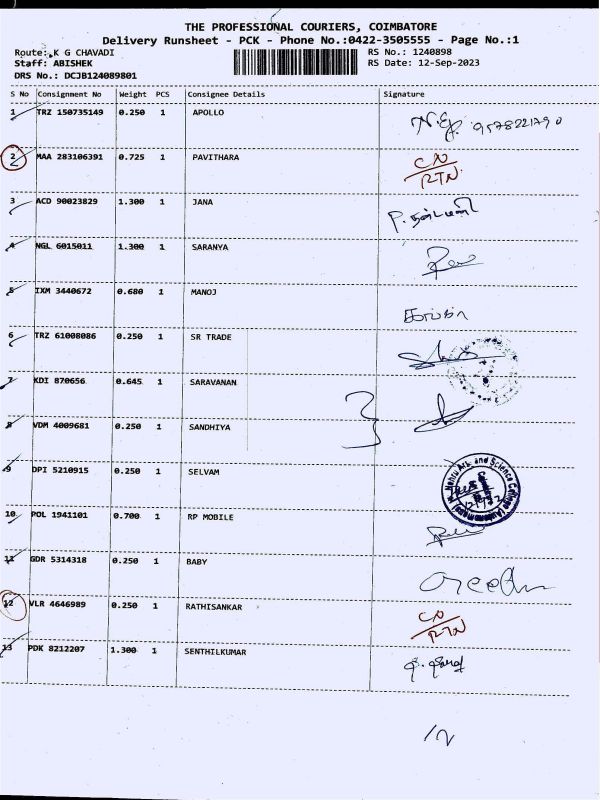 THE PROFESSIONAL COURIERS, COIMBATORE
Delivery Runsheet - PCK - Phone No.:0422-3505555 - Page No.:1
Route: K G CHAVADI RS No.: 1240898
Staff: ABISHEK RS Date: 12-Sep-2023
DRS No.: DCJB124089801
S No Consignment No Weight PCS Consignee Details Signature
1 TRZ 150735149 0.250 1 APOLLO 9578221790
2 MAA 283106391 0.725 1 PAVITHARA CN
RTN
3 ACD 90023829 1.300 1 JANA
4 NGL 6015011 1.300 1 SARANYA
5 IXM 3440672 0.680 1 MANOJ
6 TRZ 61008086 0.250 1 SR TRADE
7 KDI 870656 0.645 1 SARAVANAN
8 VDM 4009681 0.250 1 SANDHIYA
9 DPI 5210915 0.250 1 SELVAM Nehru Arts and Science College
10 POL 1941101 0.700 1 RP MOBILE
11 GDR 5314318 0.250 1 BABY
12 VLR 4646989 0.250 1 RATHISANKAR CN
RTN
13 PDK 8212207 1.300 1 SENTHILKUMAR